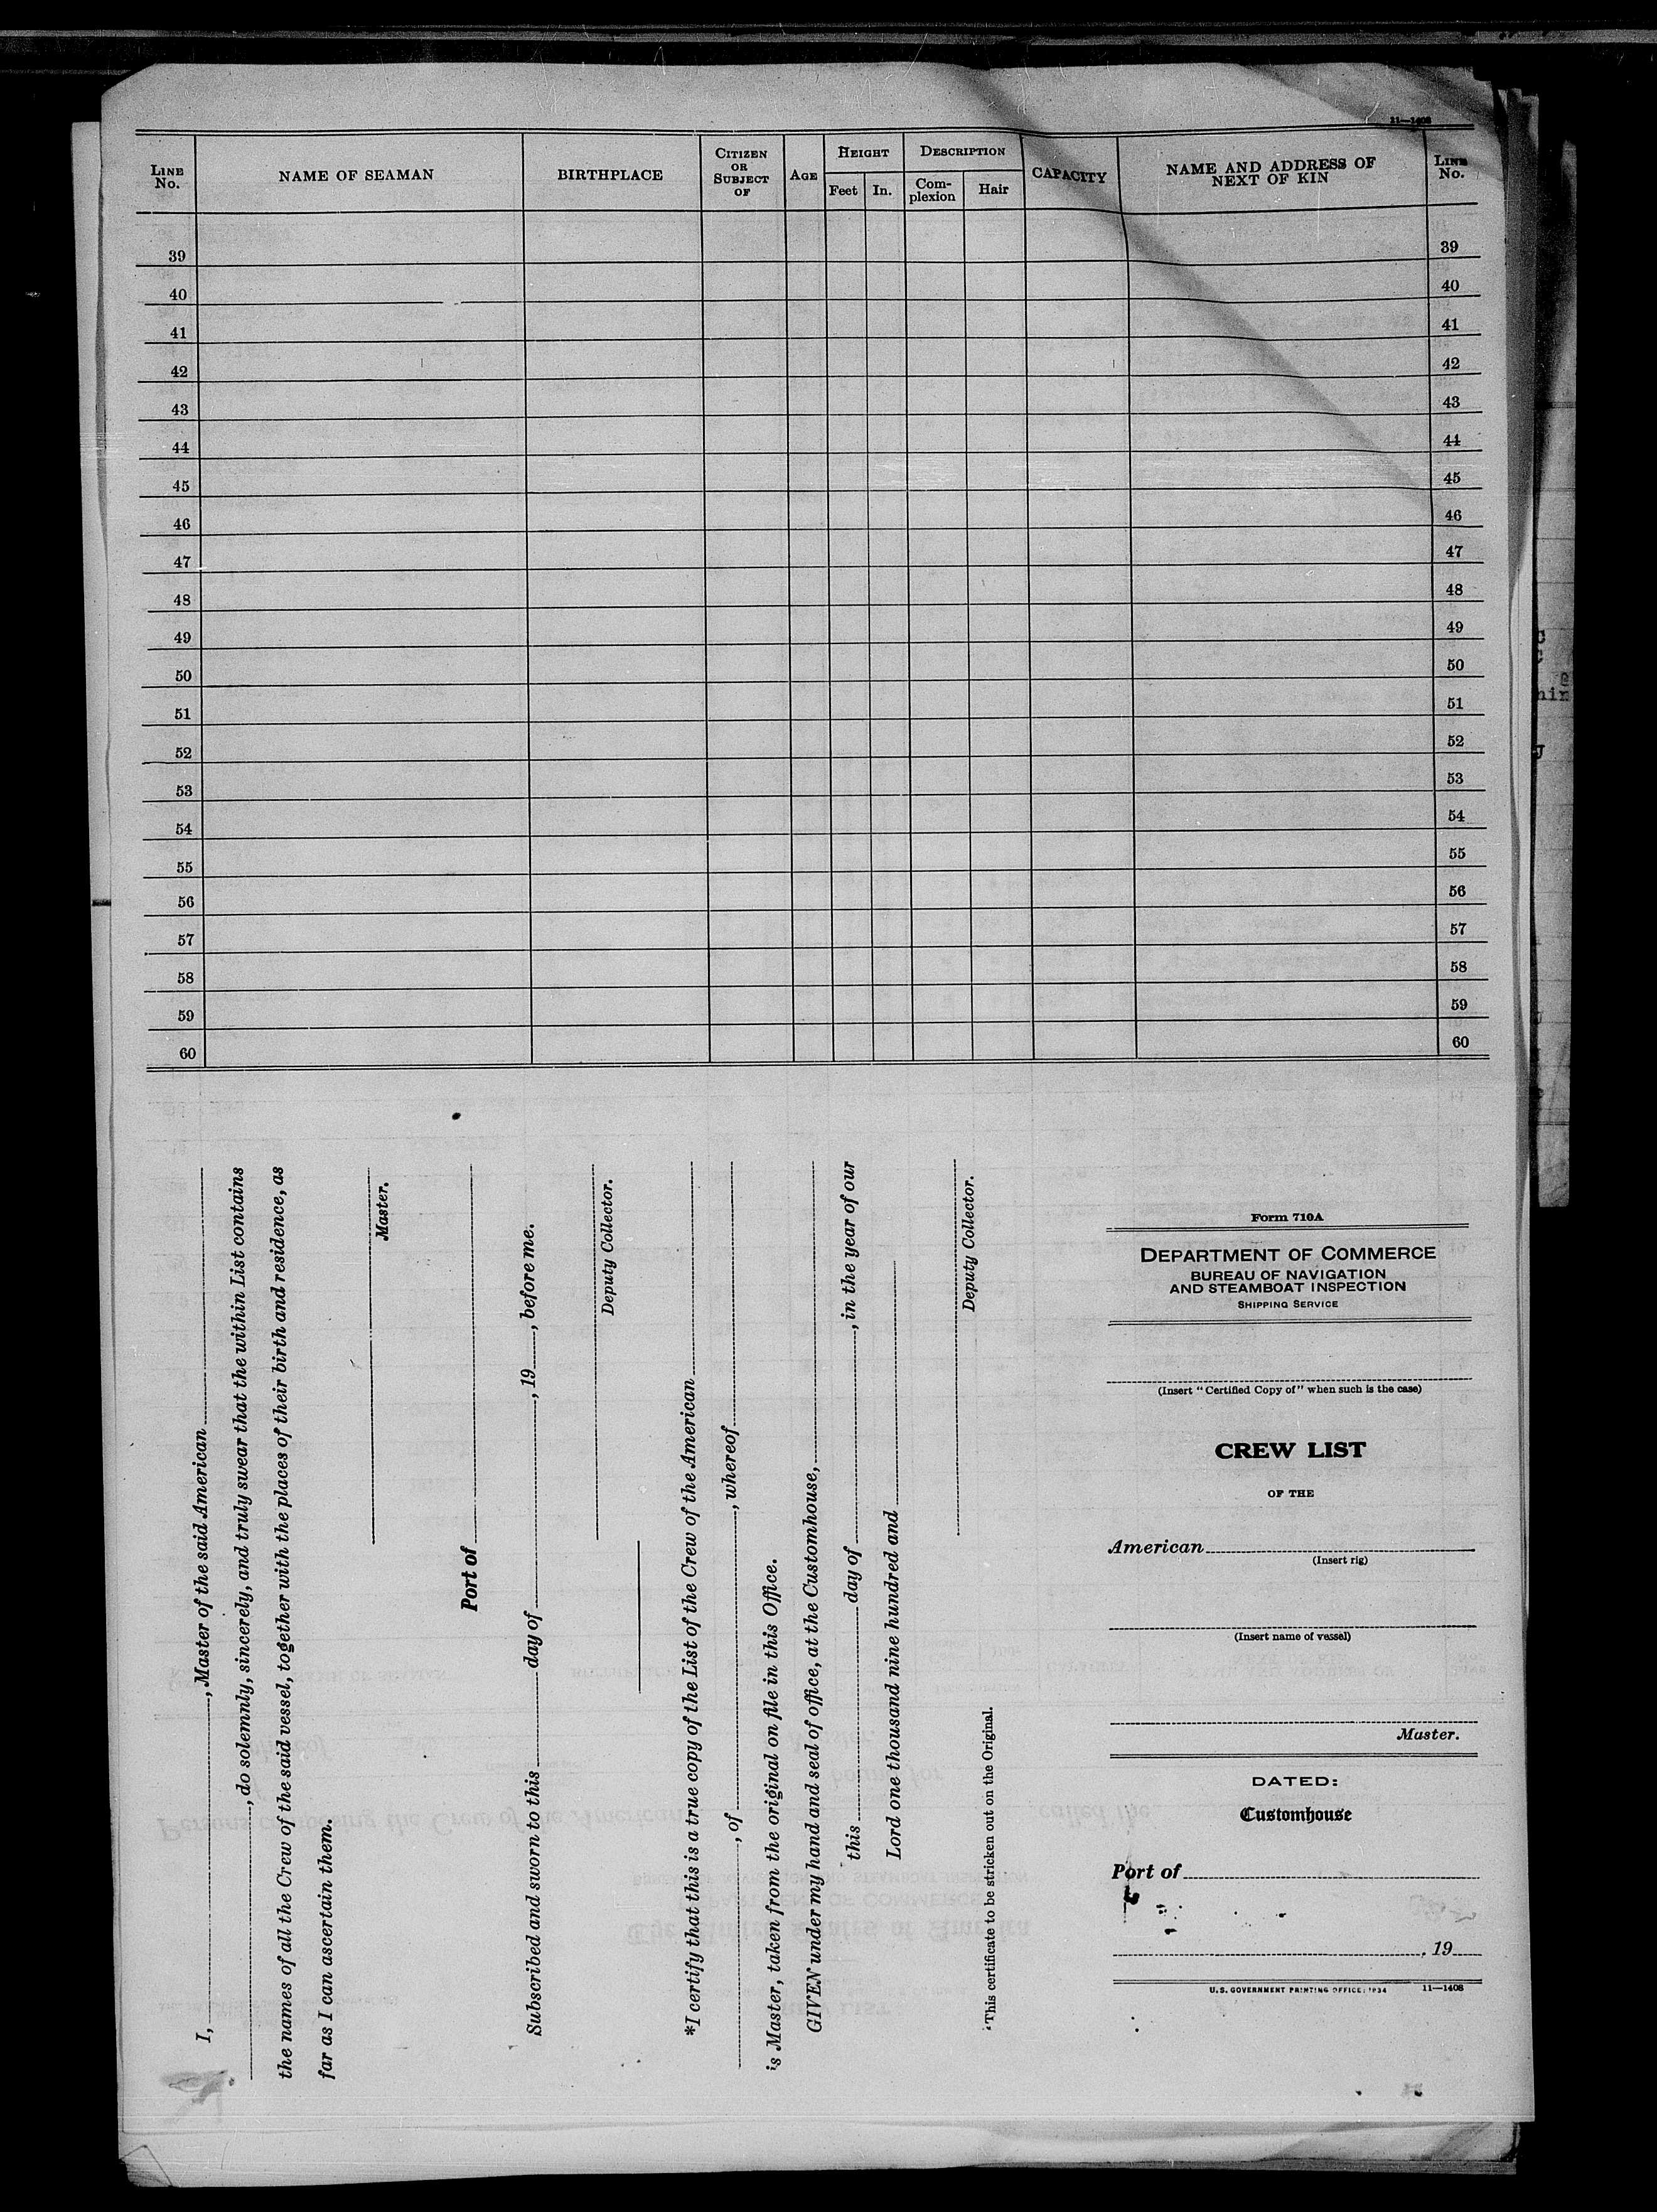 11—1408
LINE No. NAME OF SEAMAN BIRTHPLACE CITIZEN OR SUBJECT OF AGE HEIGHT Feet In. DESCRIPTION Com-plexion Hair CAPACITY NAME AND ADDRESS OF NEXT OF KIN LINE No.
39 39
40 40
41 41
42 42
43 43
44 44
45 45
46 46
47 47
48 48
49 49
50 50
51 51
52 52
53 53
54 54
55 55
56 56
57 57
58 58
59 59
60 60
I, , Master of the said American
, do solemnly, sincerely, and truly swear that the within List contains
the names of all the Crew of the said vessel, together with the places of their birth and residence, as
far as I can ascertain them.
Master.
Port of
Subscribed and sworn to this day of , 19 , before me.
Deputy Collector.
*I certify that this is a true copy of the List of the Crew of the American
, of , whereof
is Master, taken from the original on file in this Office.
GIVEN under my hand and seal of office, at the Customhouse,
this day of , in the year of our
Lord one thousand nine hundred and
Deputy Collector.
*This certificate to be stricken out on the Original.
Form 710A
DEPARTMENT OF COMMERCE
BUREAU OF NAVIGATION
AND STEAMBOAT INSPECTION
SHIPPING SERVICE
(Insert "Certified Copy of" when such is the case)
CREW LIST
OF THE
American
(Insert rig)
(Insert name of vessel)
Master.
DATED:
Customhouse
Port of
, 19
U.S. GOVERNMENT PRINTING OFFICE: 1934 11—1408